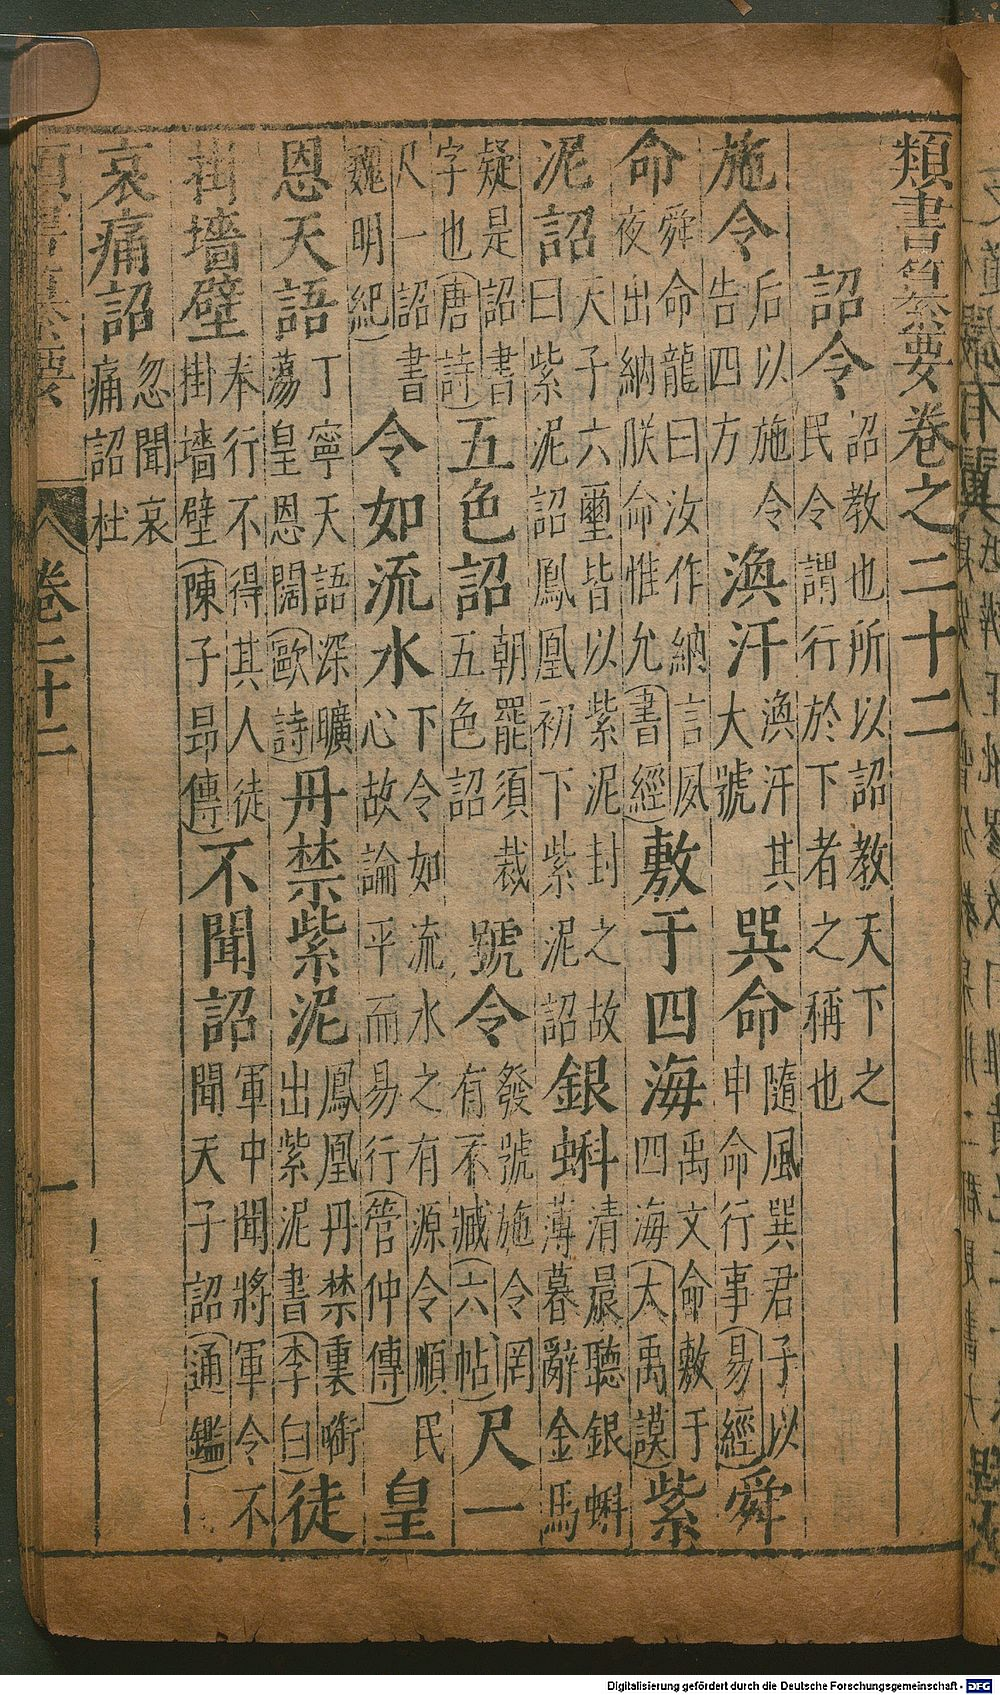 類書纂要卷之二十二
詔令 詔教也所以詔教天下之民令謂行於下者之稱也
施令 后以施令告四方 渙汗 渙汗其大號 巽命 隨風巽君子以申命行事(易經) 舜
命 舜命龍曰汝作納言夙夜出納朕命惟允(書經) 敷于四海 禹文命敷于四海(大禹謨) 紫
泥詔 天子六璽皆以紫泥封之故曰紫泥詔鳳凰初下紫泥詔 銀蝌 清晨聽銀蝌薄暮辭金馬
疑是詔書字也(唐詩) 五色詔 朝罷須裁五色詔 號令 發號施令罔有不臧(六帖) 尺一
尺一詔書魏明紀) 令如流水 下令如流水之有源令順民心故論平而易行(管仲傳) 皇
恩天語 丁寧天語深曠蕩皇恩闊(歐詩) 丹禁紫泥 鳳凰丹禁裏啣出紫泥書(李白) 徒
掛墻壁 奉行不得其人徒掛墻壁(陳子昂傳) 不聞詔 軍中聞將軍令不聞天子詔(通鑑)
哀痛詔 忽聞哀痛詔杜
卷二十二 一
Digitalisierung gefördert durch die Deutsche Forschungsgemeinschaft - DFG